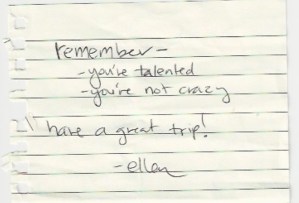 remember-
-you're talented
-you're not crazy
have a great trip!
-ellen